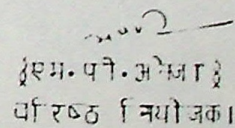 {एम. पी. ओझा}
वरिष्ठ नियोजक।